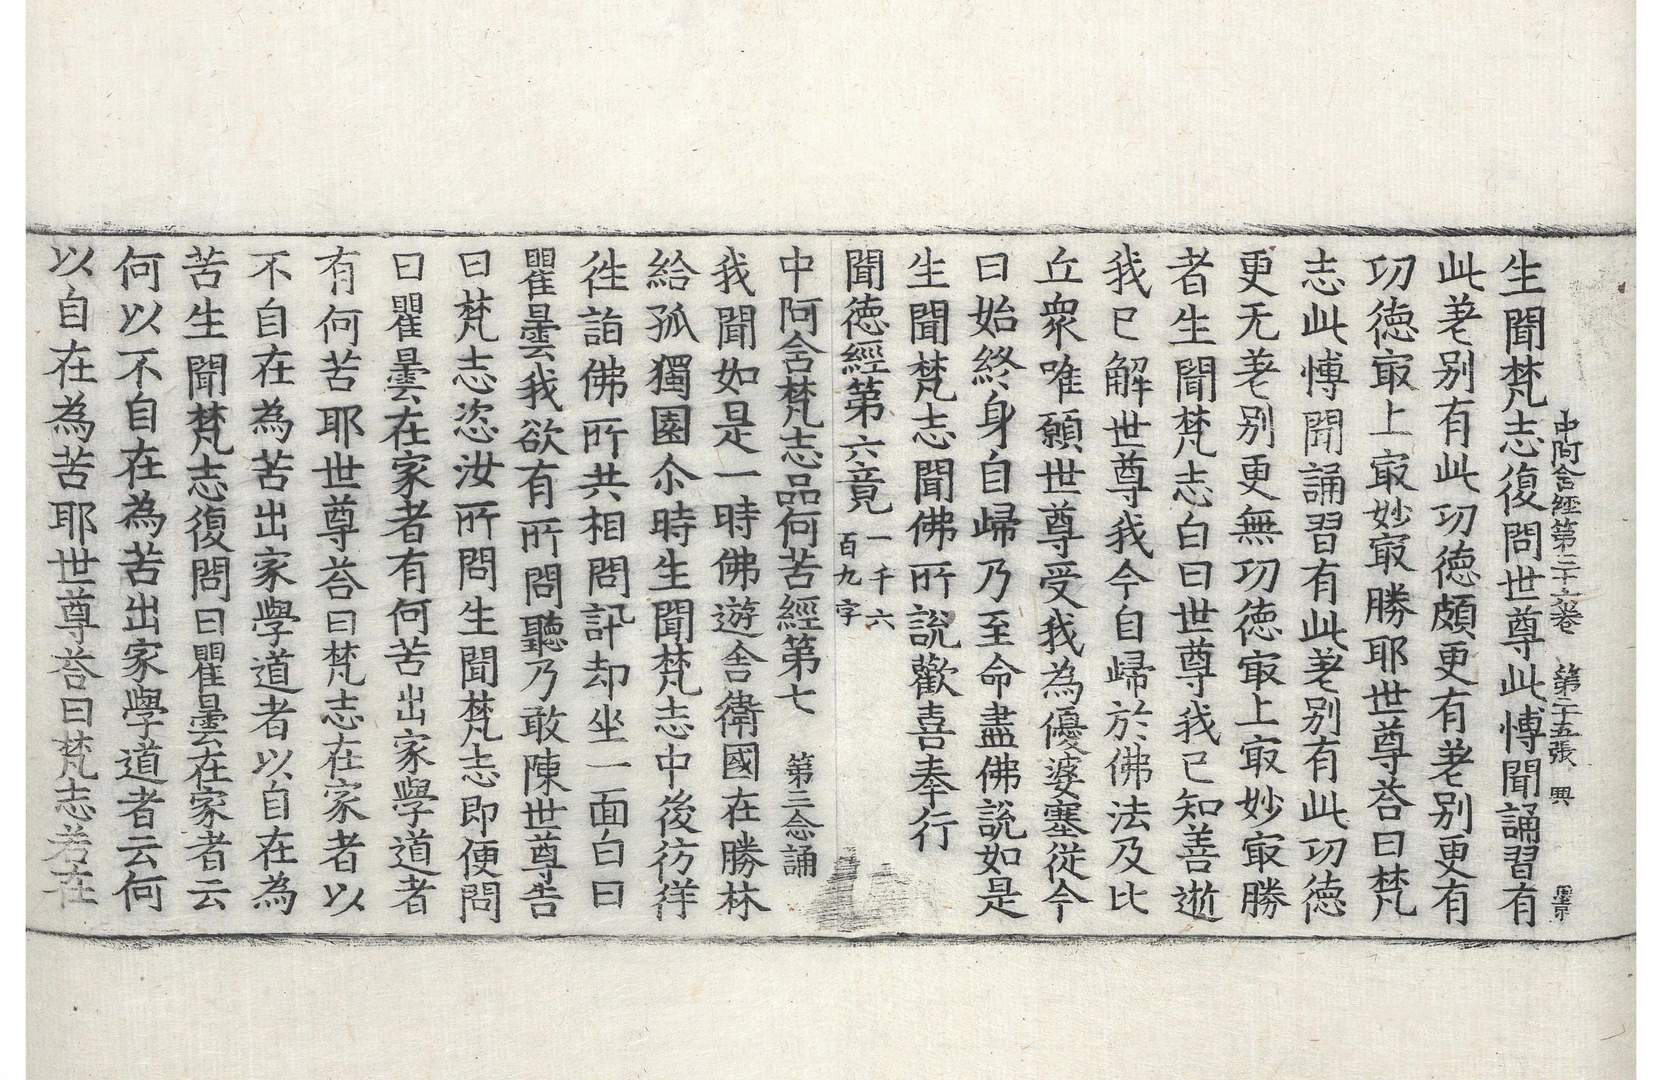 中阿含經第三十六卷 第二十五張 興
生聞梵志復問世尊此博聞誦習有
此差别有此功德頗更有差别更有
功德㝡上㝡妙㝡勝耶世尊荅曰梵
志此博聞誦習有此差别有此功德
更无差别更無功德㝡上㝡妙㝡勝
者生聞梵志白曰世尊我已知善逝
我已解世尊我今自歸於佛法及比
丘衆唯願世尊受我為優婆塞從今
日始終身自歸乃至命盡佛說如是
生聞梵志聞佛所說歡喜奉行
聞德經第六竟 一千六
百九字
中阿含梵志品何苦經第七 第三念誦
我聞如是一時佛遊舍衛國在勝林
給孤獨園尒時生聞梵志中後彷徉
往詣佛所共相問訊却坐一面白曰
瞿曇我欲有所問聽乃敢陳世尊告
曰梵志恣汝所問生聞梵志即便問
曰瞿曇在家者有何苦出家學道者
有何苦耶世尊荅曰梵志在家者以
不自在為苦出家學道者以自在為
苦生聞梵志復問曰瞿曇在家者云
何以不自在為苦出家學道者云何
以自在為苦耶世尊荅曰梵志若在